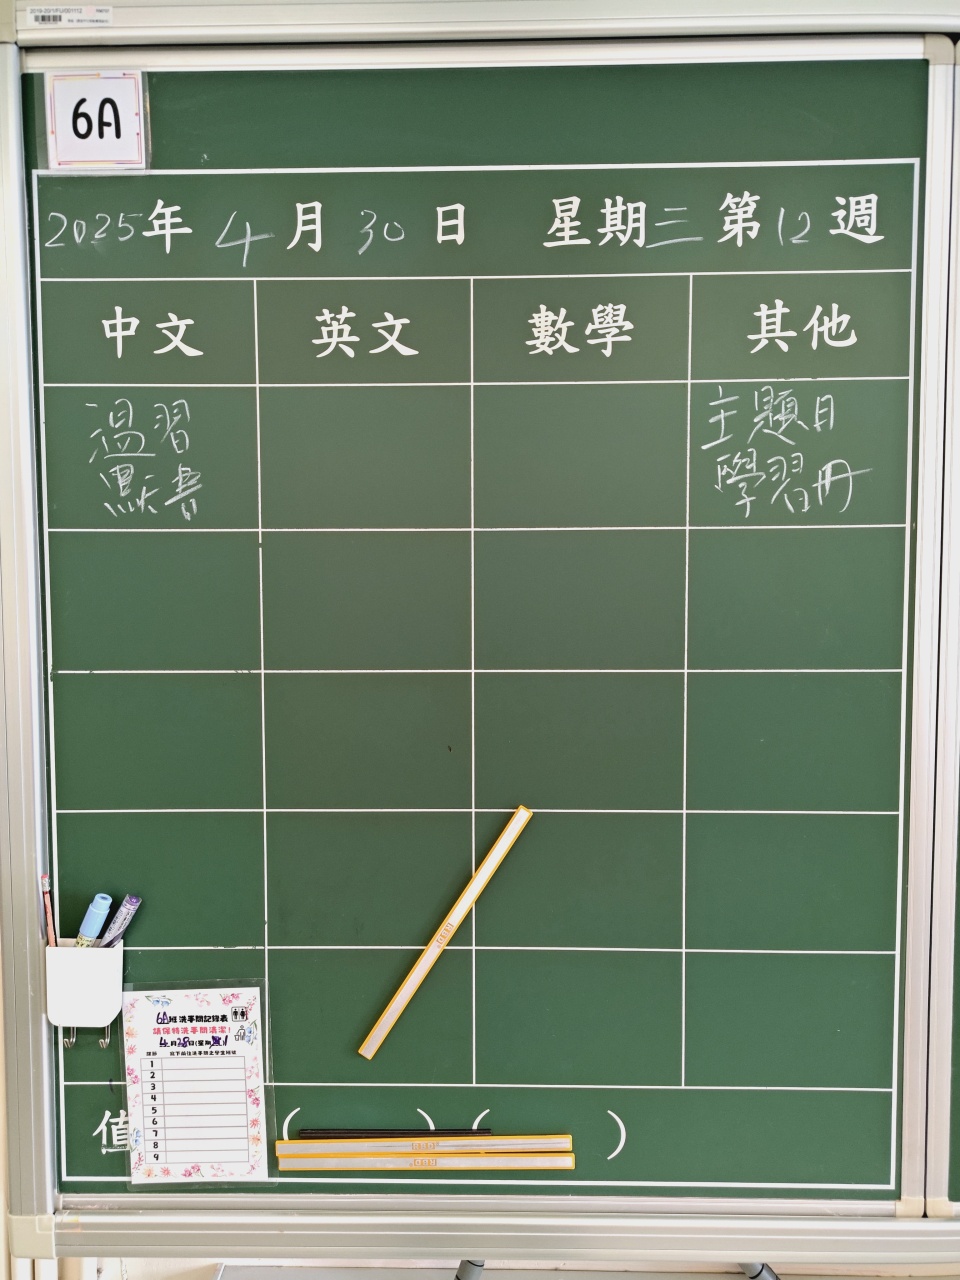 2019-20/1/FU/001112
6A
2025年 4月 30日 星期三 第12週
中文 英文 數學 其他
溫習
默書
主題日
學習冊
6A班洗手間記錄表
請保持洗手間清潔！
4月28日(星期
課節 寫下前往洗手間之學生班號
1
2
3
4
5
6
7
8
9
值
( ) ( )